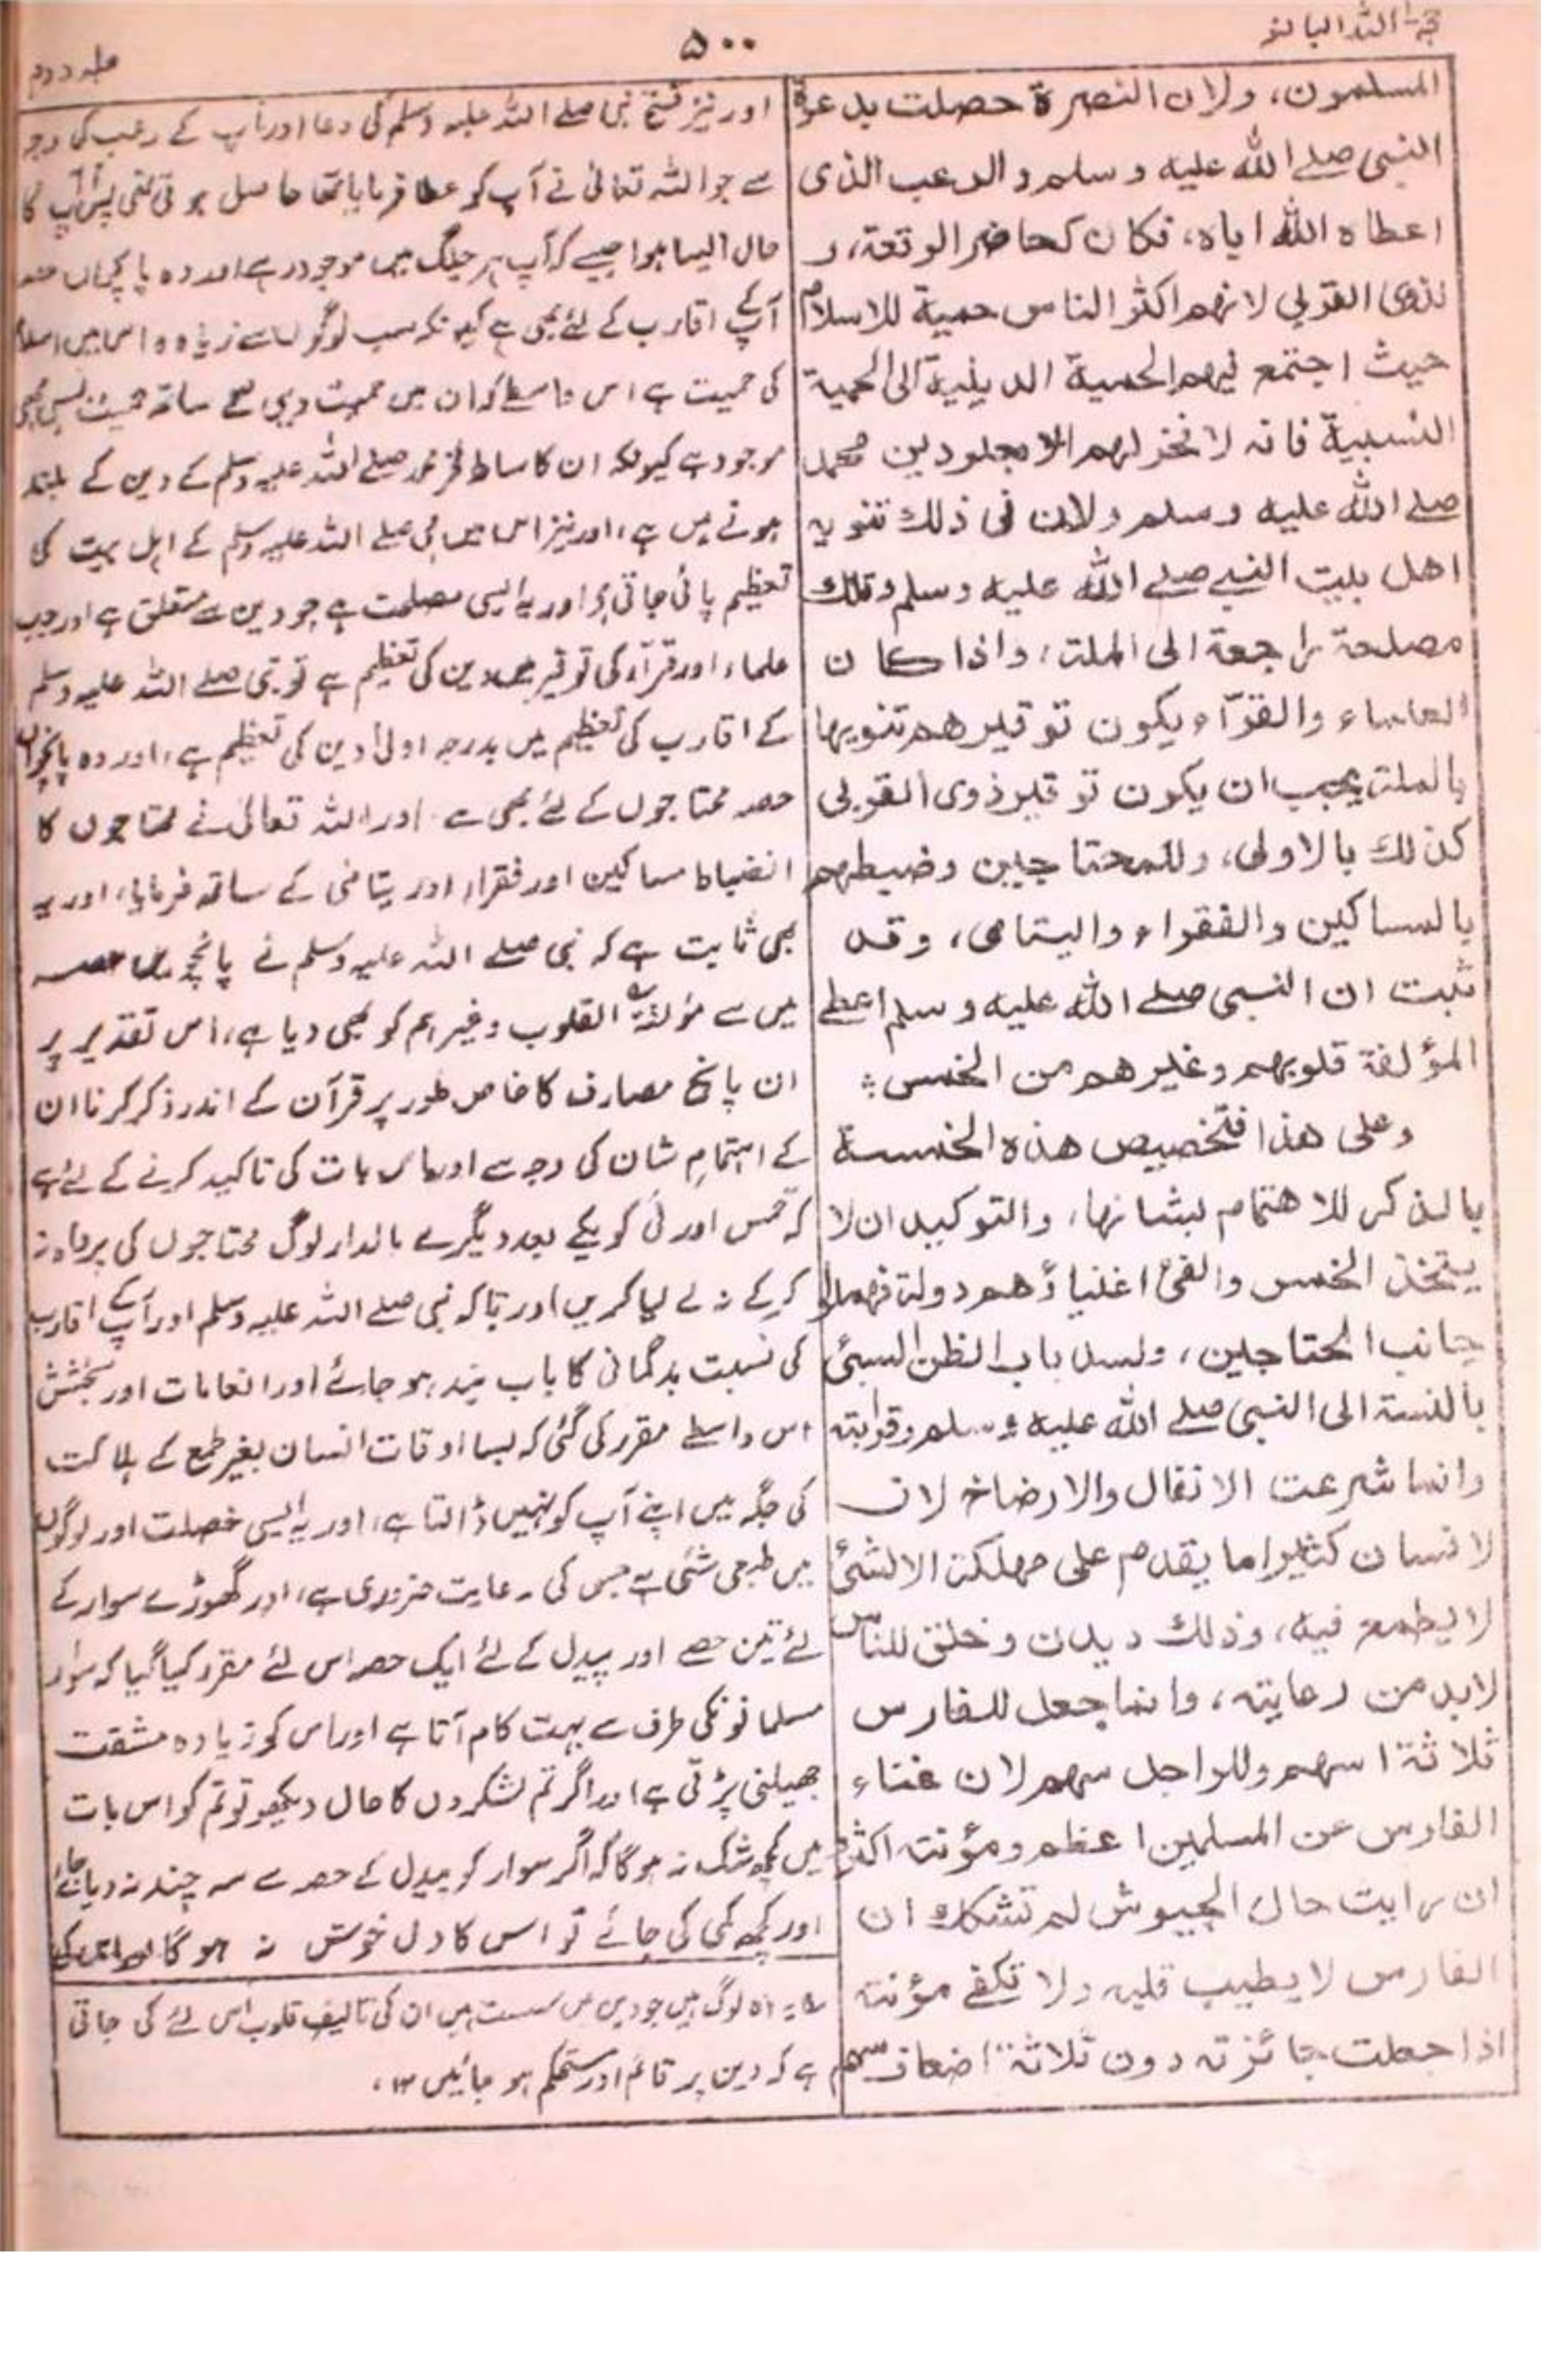 حجۃ اللہ البالغہ
۵۰۰
جلد دوم
المسلمون، ولان النصرة حصلت بدعوة
النبى صلے الله عليه وسلم والرعب الذى
اعطاه الله اياه، فكان كحاضر الوقعة، و
لذوى القربى لانهم اكثر الناس حمية للاسلام
حيث اجتمع فيهم الحمية الدينية الى الحمية
النسبية فانه لا فخر لهم الا بعلو دين محمد
صلے الله عليه وسلم ولان فى ذلك تنويه
اهل بيت النبے صلے الله عليه وسلم وتلك
مصلحة راجعة الى الملة، واذا كان
العلماء والقرّاء يكون توقيرهم تنويها
بالملة يجب ان يكون توقير ذوى القربى
كذلك بالاولى، وللمحتاجين وضبطهم
بالمساكين والفقراء واليتامى، وقد
ثبت ان النبى صلے الله عليه وسلم اعطے
المؤلفة قلوبهم وغيرهم من الخمس :
وعلى هذا فتخصيص هذه الخمسة
بالذكر للاهتمام بشانها، والتوكيد ان لا
يتخذ الخمس والفئ اغنياؤهم دولة فيهملوا
جانب المحتاجين، ولسد باب الظن السيئ
بالنسبة الى النبى صلے الله عليه وسلم وقرابته
وانما شرعت الانفال والارضاخ لان
الانسان كثيرا ما يقدم على مهلكة الا لشئ
لا يطمع فيه، وذلك ديدن وخلق للناس
لابد من رعايته، وانما جعل للفارس
ثلاثة اسهم وللراجل سهم لان غناء
الفارس عن المسلمين اعظم ومؤنته اكثر و
ان رايت حال الجيوش لم تشك ان
الفارس لا يطيب قلبه ولا تكفے مؤنته
اذا جعلت جائزته دون ثلاثة اضعاف سهم
اور نیز فتح نبی صلے اللہ علیہ وسلم کی دعا اور آپ کے رعب کی وجہ
سے جو اللہ تعالیٰ نے آپ کو عطا فرمایا تھا حاصل ہوتی تھی پس آپ کا
حال ایسا ہوا جیسے کہ آپ ہر جنگ میں موجود رہے اور وہ پانچواں حصہ
آپ کے اقارب کے لئے بھی ہے کیونکہ سب لوگوں سے زیادہ اس میں اسلام
کی حمیت ہے اس واسطے کہ ان میں حمیت دینی کے ساتھ حمیت نسبی بھی
موجود ہے کیونکہ ان کا سارا فخر محمد صلے اللہ علیہ وسلم کے دین کے بلند
ہونے میں ہے، اور نیز اس میں نبی صلے اللہ علیہ وسلم کے اہل بیت کی
تعظیم پائی جاتی ہے اور یہ ایسی مصلحت ہے جو دین سے متعلق ہے اور جب
علماء اور قرآء کی توقیر میں دین کی تعظیم ہے تو نبی صلے اللہ علیہ وسلم
کے اقارب کی تعظیم میں بدرجہ اولیٰ دین کی تعظیم ہے، اور وہ پانچواں
حصہ محتاجوں کے لئے بھی ہے اور اللہ تعالیٰ نے محتاجوں کا
انضباط مساکین اور فقراء اور یتامیٰ کے ساتھ فرمایا، اور یہ
بھی ثابت ہے کہ نبی صلے اللہ علیہ وسلم نے پانچویں حصہ
میں سے مؤلفۃ القلوب وغیرہم کو بھی دیا ہے، اس تقدیر پر
ان پانچ مصارف کا خاص طور پر قرآن کے اندر ذکر کرنا ان
کے اہتمام شان کی وجہ سے اور اس بات کی تاکید کرنے کے لئے ہے
کہ خمس اور فئ کو یکے بعد دیگرے مالدار لوگ محتاجوں کی پرواہ نہ
کرکے نہ لے لیا کریں اور تاکہ نبی صلے اللہ علیہ وسلم اور آپ کے اقارب
کی نسبت بدگمانی کا باب بند ہو جائے اور انعامات اور بخشش
اس واسطے مقرر کی گئی کہ بسا اوقات انسان بغیر طمع کے ہلاکت
کی جگہ میں اپنے آپ کو نہیں ڈالتا ہے، اور یہ ایسی خصلت اور لوگوں
میں طبعی شئی ہے جس کی رعایت ضروری ہے، اور گھوڑے سوار کے
لئے تین حصے اور پیدل کے لئے ایک حصہ اس لئے مقرر کیا گیا کہ سوار
مسلمانونکی طرف سے بہت کام آتا ہے اور اس کو زیادہ مشقت
جھیلنی پڑتی ہے اور اگر تم لشکروں کا حال دیکھو تو تم کو اس بات
میں کچھ شک نہ ہوگا کہ اگر سوار کو پیدل کے حصہ سے سہ چند نہ دیا جائے
اور کچھ کمی کی جائے تو اس کا دل خوش نہ ہوگا
یہ وہ لوگ ہیں جو دین میں سست ہیں ان کی تالیف قلوب اس لئے کی جاتی
ہے کہ دین پر قائم اور مستحکم ہو جائیں ۱۲،